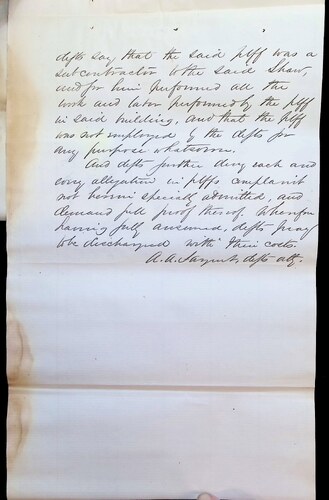 defts say that the said plff was a
subcontractor to the said Shaw,
and for him performed all the
work and labor performed by the plff
in said building, and that the plff
was not employed by the defts for
any purpose whatsoever.
And defts further deny each and
every allegation in plffs complaint
not herein specially admitted, and
demand full proof thereof. Wherefore
having fully answered, defts pray
to be discharged with their costs.
A. A. Sargent, defts atty.